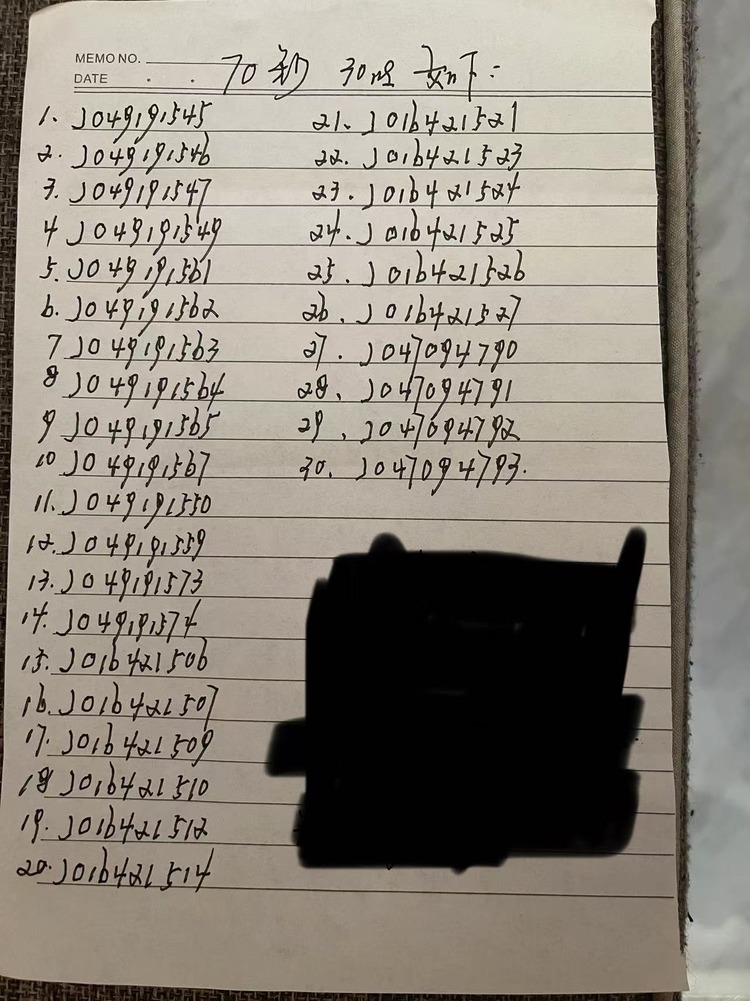 MEMO NO.
DATE
70秒 30吨 如下:
1. J049191545
2. J049191546
3. J049191547
4 J049191549
5. J049191561
6. J049191562
7 J049191563
8 J049191564
9 J049191565
10 J049191567
11. J049191550
12. J049191559
13. J049191573
14. J049191574
15. J016421506
16. J016421507
17. J016421509
18 J016421510
19. J016421512
20. J016421514
21. J016421521
22. J016421523
23. J016421524
24. J016421525
25. J016421526
26. J016421527
27. J047094790
28. J047094791
29. J047094792
30. J047094793.